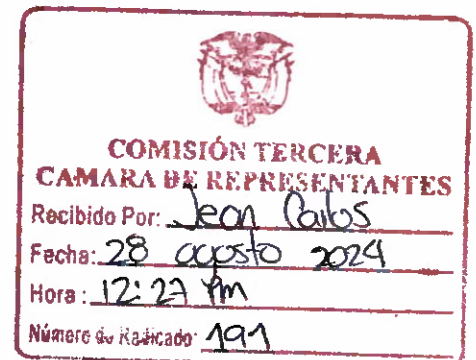 COMISIÓN TERCERA
CAMARA DE REPRESENTANTES
Recibido Por: Jean Carlos
Fecha: 28 agosto 2024
Hora: 12:27 PM
Número de Radicado: 191